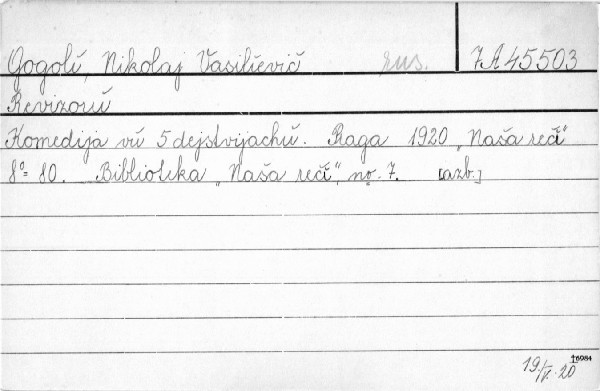 Gogolĭ, Nikolaj Vasilĭevič rus. 7A45503
Revizorŭ
Komedija vŭ 5 dejstvijachŭ. Praga 1920 „Naša rečĭ"
8°= 80. Biblioteka „Naša rečĭ", no. 7. [azb.]
19/V. 20 16984